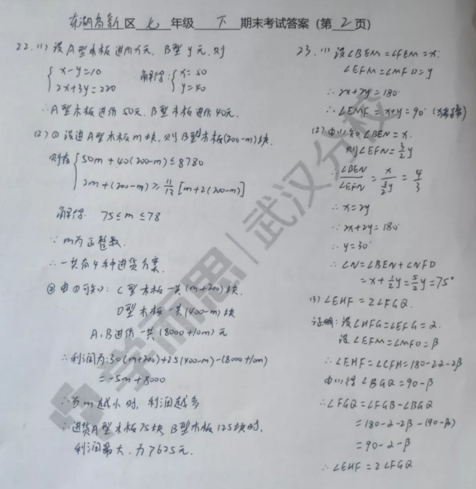 东湖高新区 七 年级 下 期末考试答案（第 2 页）
22. (1) 设A型木板进价x元, B型y元, 则
{ x-y=10
2x+3y=220 解得: { x=50
y=40
∴A型木板进价50元, B型木板进价40元.
(2) ① 设进A型木板m块, 则B型木板(200-m)块.
则有 { 50m+40(200-m)≤8780
2m+(200-m)≥ [m+2(200-m)]
解得: 75≤m≤78
∵m为正整数.
∴一共有4种进货方案.
② 由①可知: C型木板一共(m+200)块
D型木板一共(400-m)块
A、B进价一共(8000+10m)元
∴利润为: 30(m+200)+25(400-m)-(8000+10m)
=-5m+8000
∴当m越小时, 利润越多
∴进货A型木板75块, B型木板125块时,
利润最大, 为7625元.
23. (1) 设∠BEM=∠FEM=x.
∠EFM=∠MFD=y
∴2x+2y=180°
∴∠EMF=x+y=90°
(2) 由(1)知∠BEN=x.
则∠EFN=3/2 y
∴ ∠BEN/∠EFN = x/(3/2 y) = 4/3
∴x=2y
∵2x+2y=180°
∴y=30°
∴∠N=∠BEN+∠NFD
=x+1/2 y=5/2 y=75°
(3) ∠EHF=2∠FGQ.
证明: 设∠HFG=∠EFG=α.
设∠EFM=∠MFD=β
∴∠EHF=∠CFH=180-2α-2β
由(1)得∠BGQ=90-β
∴∠FGQ=∠FGB-∠BGQ
=180-α-2β-(90-β)
=90-α-β
∴∠EHF=2∠FGQ
学而思 | 武汉分校